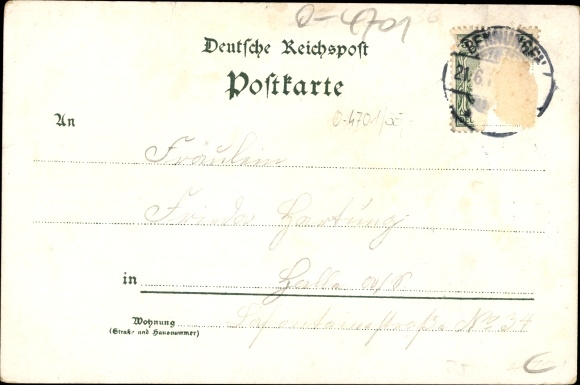 O-4701
Deutsche Reichspost
Postkarte
21.6.
O-4701/
An
Fräulein
Frieda Hartung
in Halle a/S
Wohnung Lafontainestraße No 34
(Straße und Hausnummer)